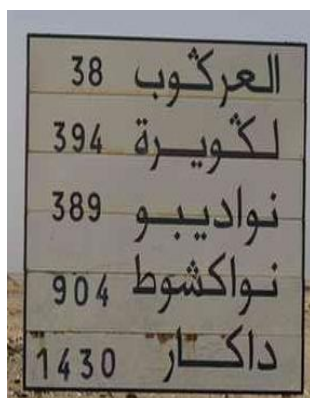 العركوب 38
لكويرة 394
نواديبو 389
نواكشوط 904
داكار 1430